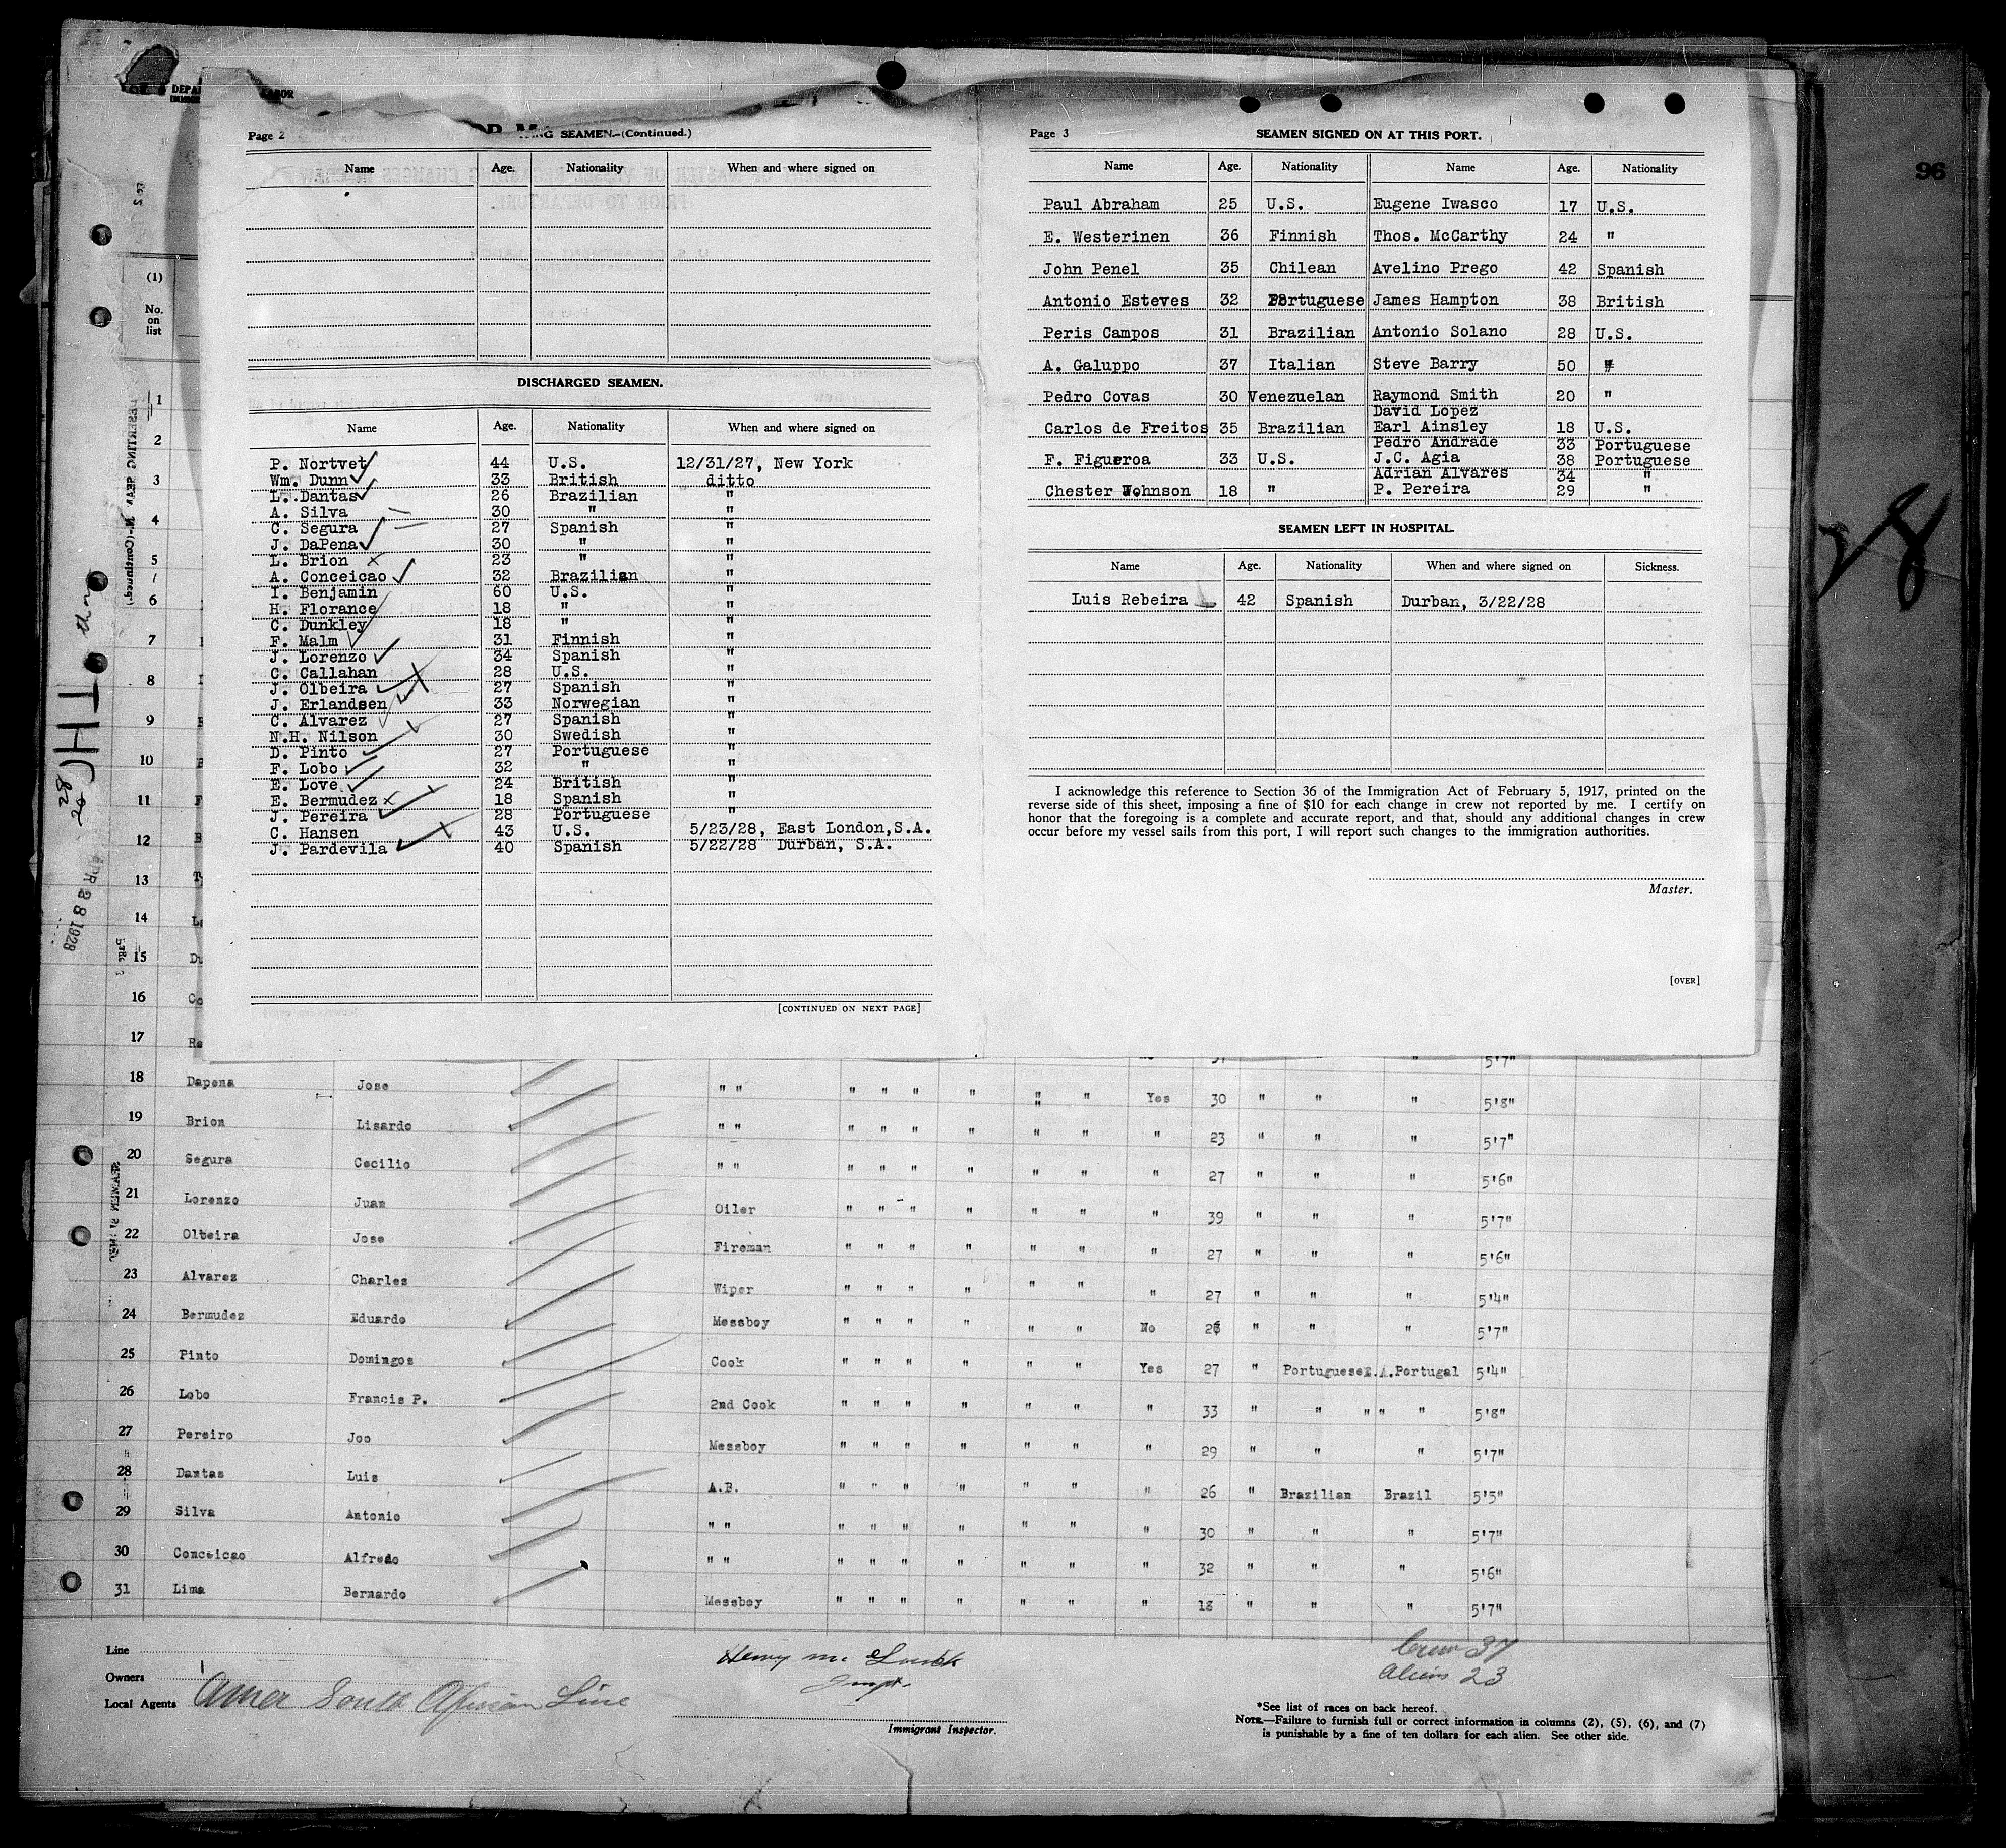 DEPA
ABOR
IMMIG
Page 2
ING SEAMEN.—(Continued.)
Name Age. Nationality When and where signed on
DISCHARGED SEAMEN.
Name Age. Nationality When and where signed on
P. Nortvet 44 U.S. 12/31/27, New York
Wm. Dunn 33 British ditto
L. Dantas 26 Brazilian "
A. Silva 30 " "
C. Segura 27 Spanish "
J. DaPena 30 " "
L. Brion 23 " "
A. Conceicao 32 Brazilian "
I. Benjamin 60 U.S. "
H. Florance 18 " "
C. Dunkley 18 " "
F. Malm 31 Finnish "
J. Lorenzo 34 Spanish "
C. Callahan 28 U.S. "
J. Olbeira 27 Spanish "
J. Erlandsen 33 Norwegian "
C. Alvarez 27 Spanish "
N.H. Nilson 30 Swedish "
D. Pinto 27 Portuguese "
F. Lobo 32 " "
E. Love 24 British "
E. Bermudez 18 Spanish "
J. Pereira 28 Portuguese "
C. Hansen 43 U.S. 5/23/28, East London,S.A.
J. Pardevila 40 Spanish 5/22/28 Durban, S.A.
[CONTINUED ON NEXT PAGE]
Page 3
SEAMEN SIGNED ON AT THIS PORT.
Name Age. Nationality Name Age. Nationality
Paul Abraham 25 U.S. Eugene Iwasco 17 U.S.
E. Westerinen 36 Finnish Thos. McCarthy 24 "
John Penel 35 Chilean Avelino Prego 42 Spanish
Antonio Esteves 32 Portuguese James Hampton 38 British
Peris Campos 31 Brazilian Antonio Solano 28 U.S.
A. Galuppo 37 Italian Steve Barry 50 "
Pedro Covas 30 Venezuelan Raymond Smith 20 "
David Lopez
Carlos de Freitos 35 Brazilian Earl Ainsley 18 U.S.
Pedro Andrade 33 Portuguese
F. Figueroa 33 U.S. J.C. Agia 38 Portuguese
Adrian Alvares 34 "
Chester Johnson 18 " P. Pereira 29 "
SEAMEN LEFT IN HOSPITAL.
Name Age. Nationality When and where signed on Sickness.
Luis Rebeira 42 Spanish Durban, 3/22/28
I acknowledge this reference to Section 36 of the Immigration Act of February 5, 1917, printed on the
reverse side of this sheet, imposing a fine of $10 for each change in crew not reported by me. I certify on
honor that the foregoing is a complete and accurate report, and that, should any additional changes in crew
occur before my vessel sails from this port, I will report such changes to the immigration authorities.
Master.
[OVER]
96
(1)
No.
on
list
1
2
3
4
5
6
7
8
9
10
11
12
13
14
15
16
17 5'7"
APR 28 1928
18 Dapena Jose " " " " " " " " Yes 30 " " " 5'8"
19 Brion Lisardo " " " " " " " " " 23 " " " 5'7"
20 Segura Cecilio " " " " " " " " " 27 " " " 5'6"
21 Lorenzo Juan Oiler " " " " " " " 39 " " " 5'7"
22 Olbeira Jose Fireman " " " " " " " 27 " " " 5'6"
23 Alvarez Charles Wiper " " " " " " " 27 " " " 5'4"
24 Bermudez Eduardo Messboy " " " " " " No " " " 5'7"
25 Pinto Domingos Cook " " " " " " Yes 27 " Portuguese E.A.Portugal 5'4"
26 Lobo Francis P. 2nd Cook " " " " " " " 33 " " " " " 5'8"
27 Pereiro Joo Messboy " " " " " " " 29 " " " 5'7"
28 Dantas Luis A.B. " " " " " " " 26 " Brazilian Brazil 5'5"
29 Silva Antonio " " " " " " " " " 30 " " " 5'7"
30 Conceicao Alfredo " " " " " " " " " 32 " " " 5'6"
31 Lima Bernardo Messboy " " " " " " " 18 " " " 5'7"
Line
Owners
Local Agents Amer South African Line
Immigrant Inspector.
Crew 37
Aliens 23
*See list of races on back hereof.
NOTE.—Failure to furnish full or correct information in columns (2), (5), (6), and (7)
is punishable by a fine of ten dollars for each alien. See other side.